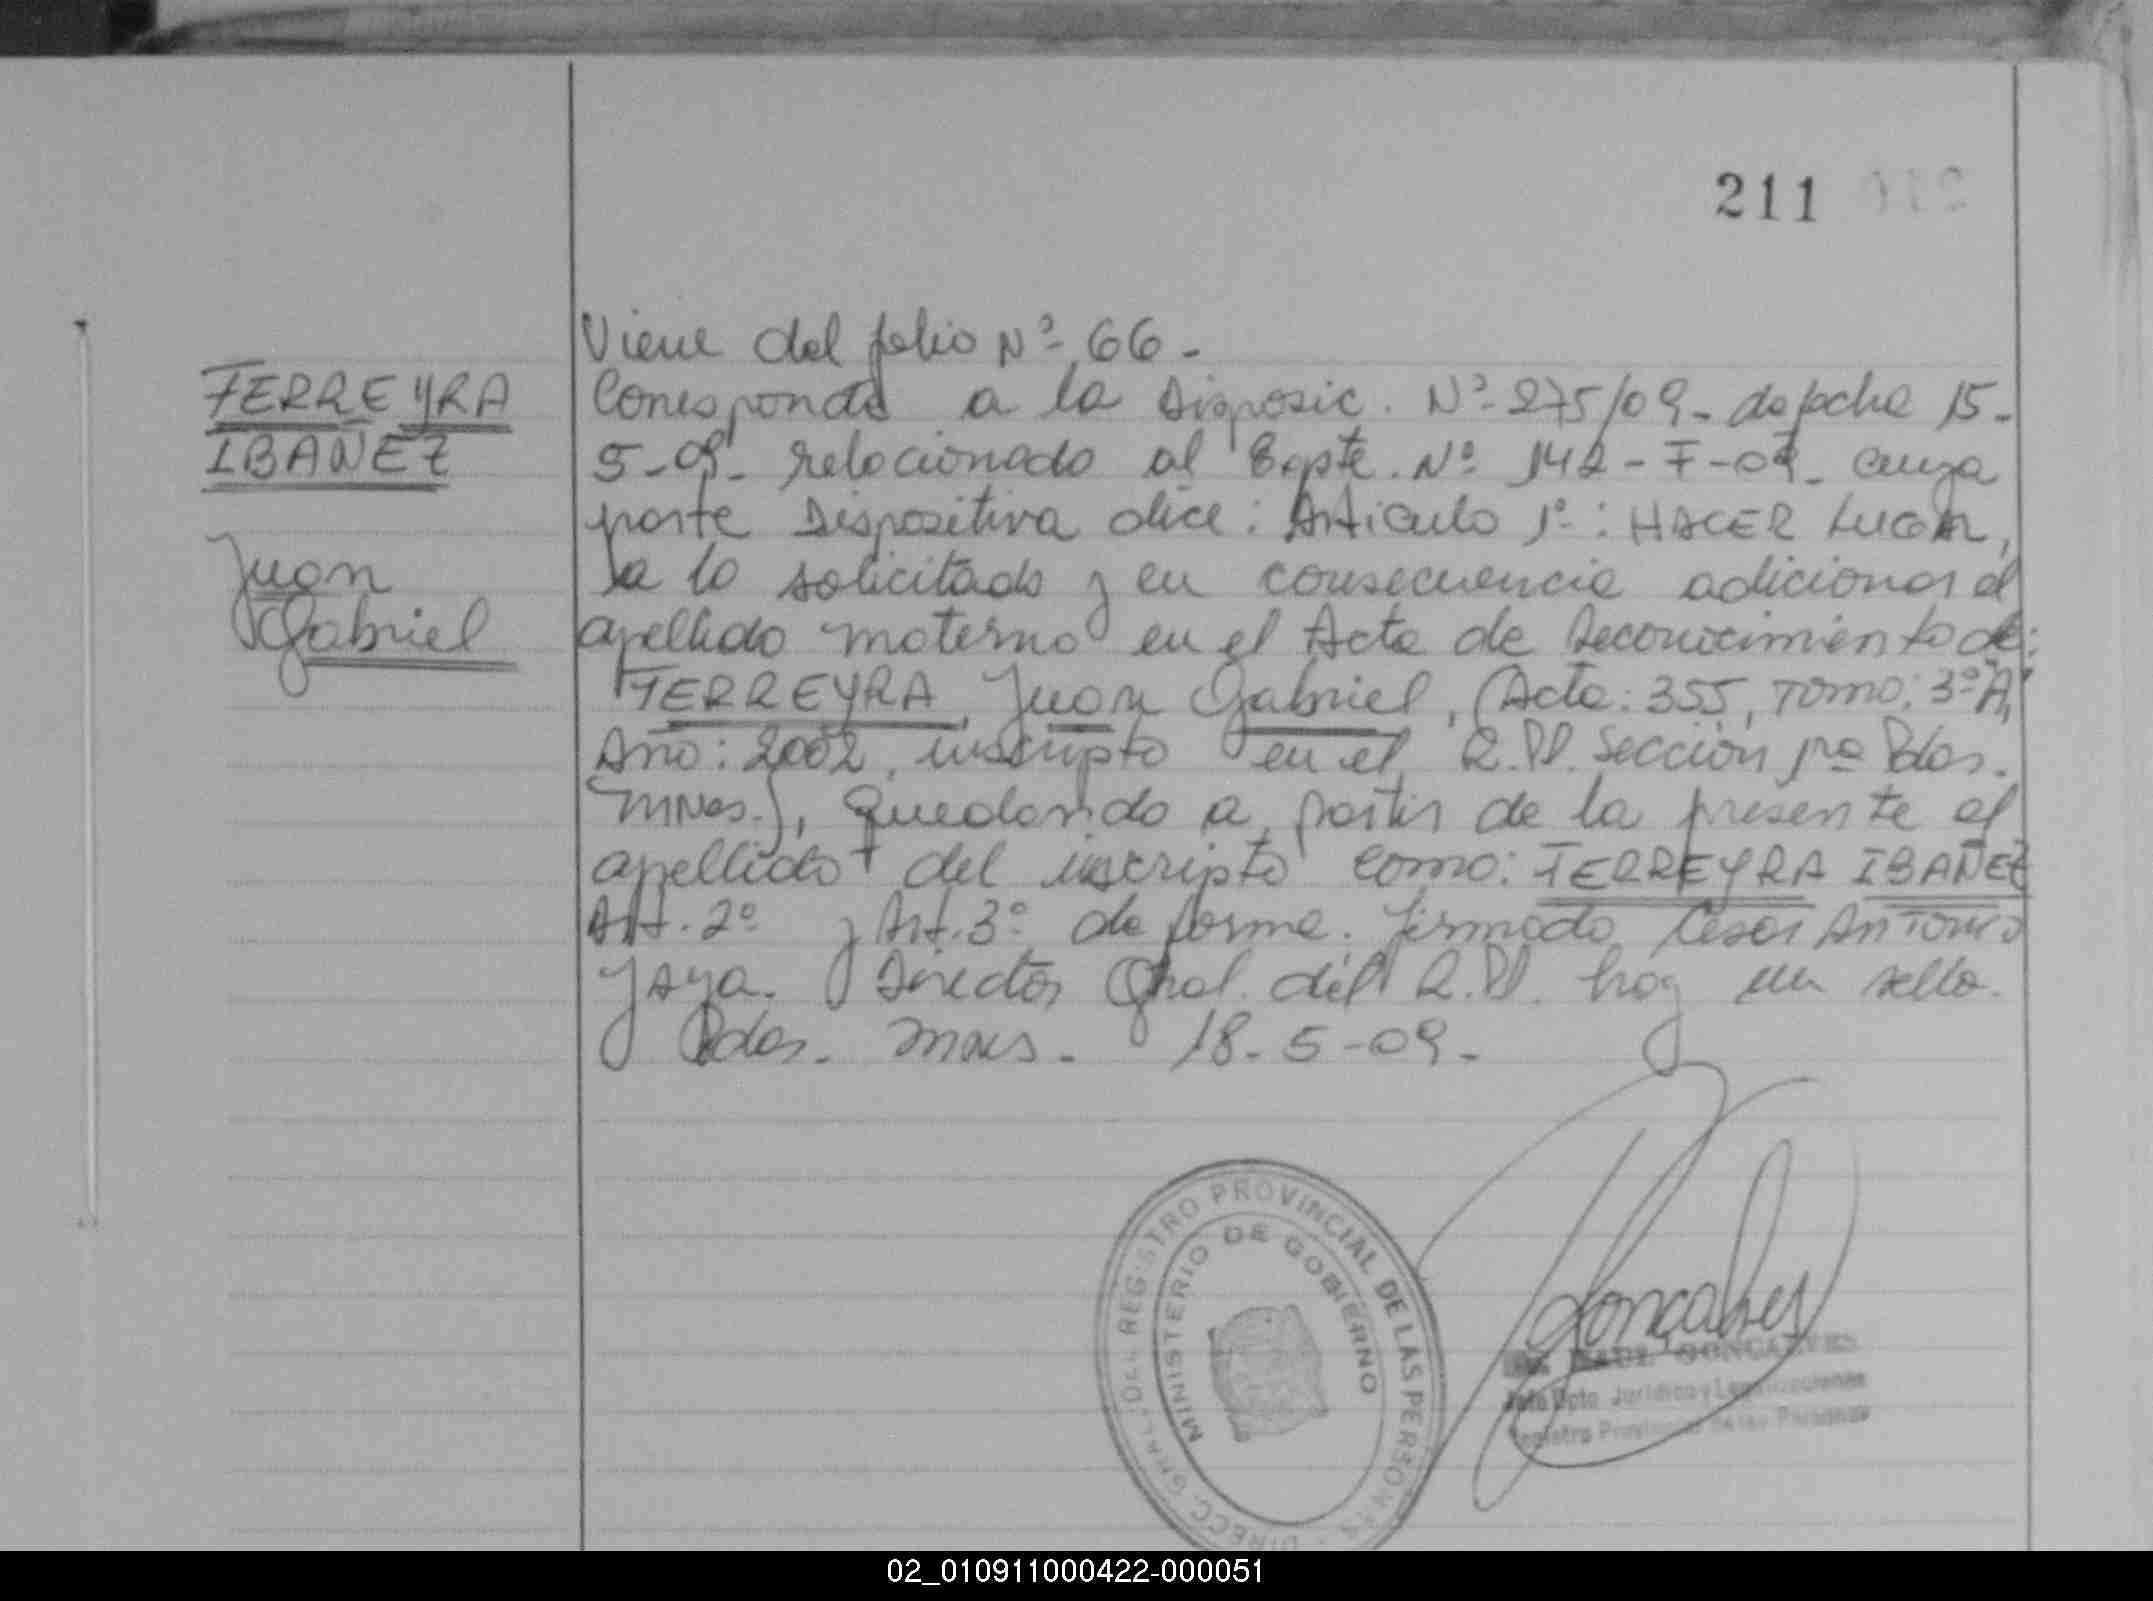 211
Viene del folio Nº 66.-
FERREYRA
IBAÑEZ
Juan
Gabriel
Corresponde a la Disposic. Nº 275/09- de fecha 15-
5-09- relacionado al Expte. Nº 142-F-09- cuya
parte Dispositiva dice: Articulo 1º: HACER LUGAR,
a lo solicitado y en consecuencia adicionar el
apellido materno en el Acta de Reconocimiento de:
FERREYRA, Juan Gabriel, (Acta: 355, Tomo: 3º "A",
Año: 2002, inscripto en el R.PP. Sección 1ra Pdas.
Mnes.), Quedando a partir de la presente el
apellido del inscripto como: FERREYRA IBAÑEZ
Art. 2º y Art. 3º de forma. Firmado Cesar Antonio
Yaya. Director Gral. del R.PP. hay un sello.
Pdas. Mnes. 18-5-09-
DIRECC. GRAL. DEL REGISTRO PROVINCIAL DE LAS PERSONAS
MINISTERIO DE GOBIERNO
Goncalves
GONCALVES
Jefe Dpto Jurídico y
Registro Provincial de las Personas
02_010911000422-000051